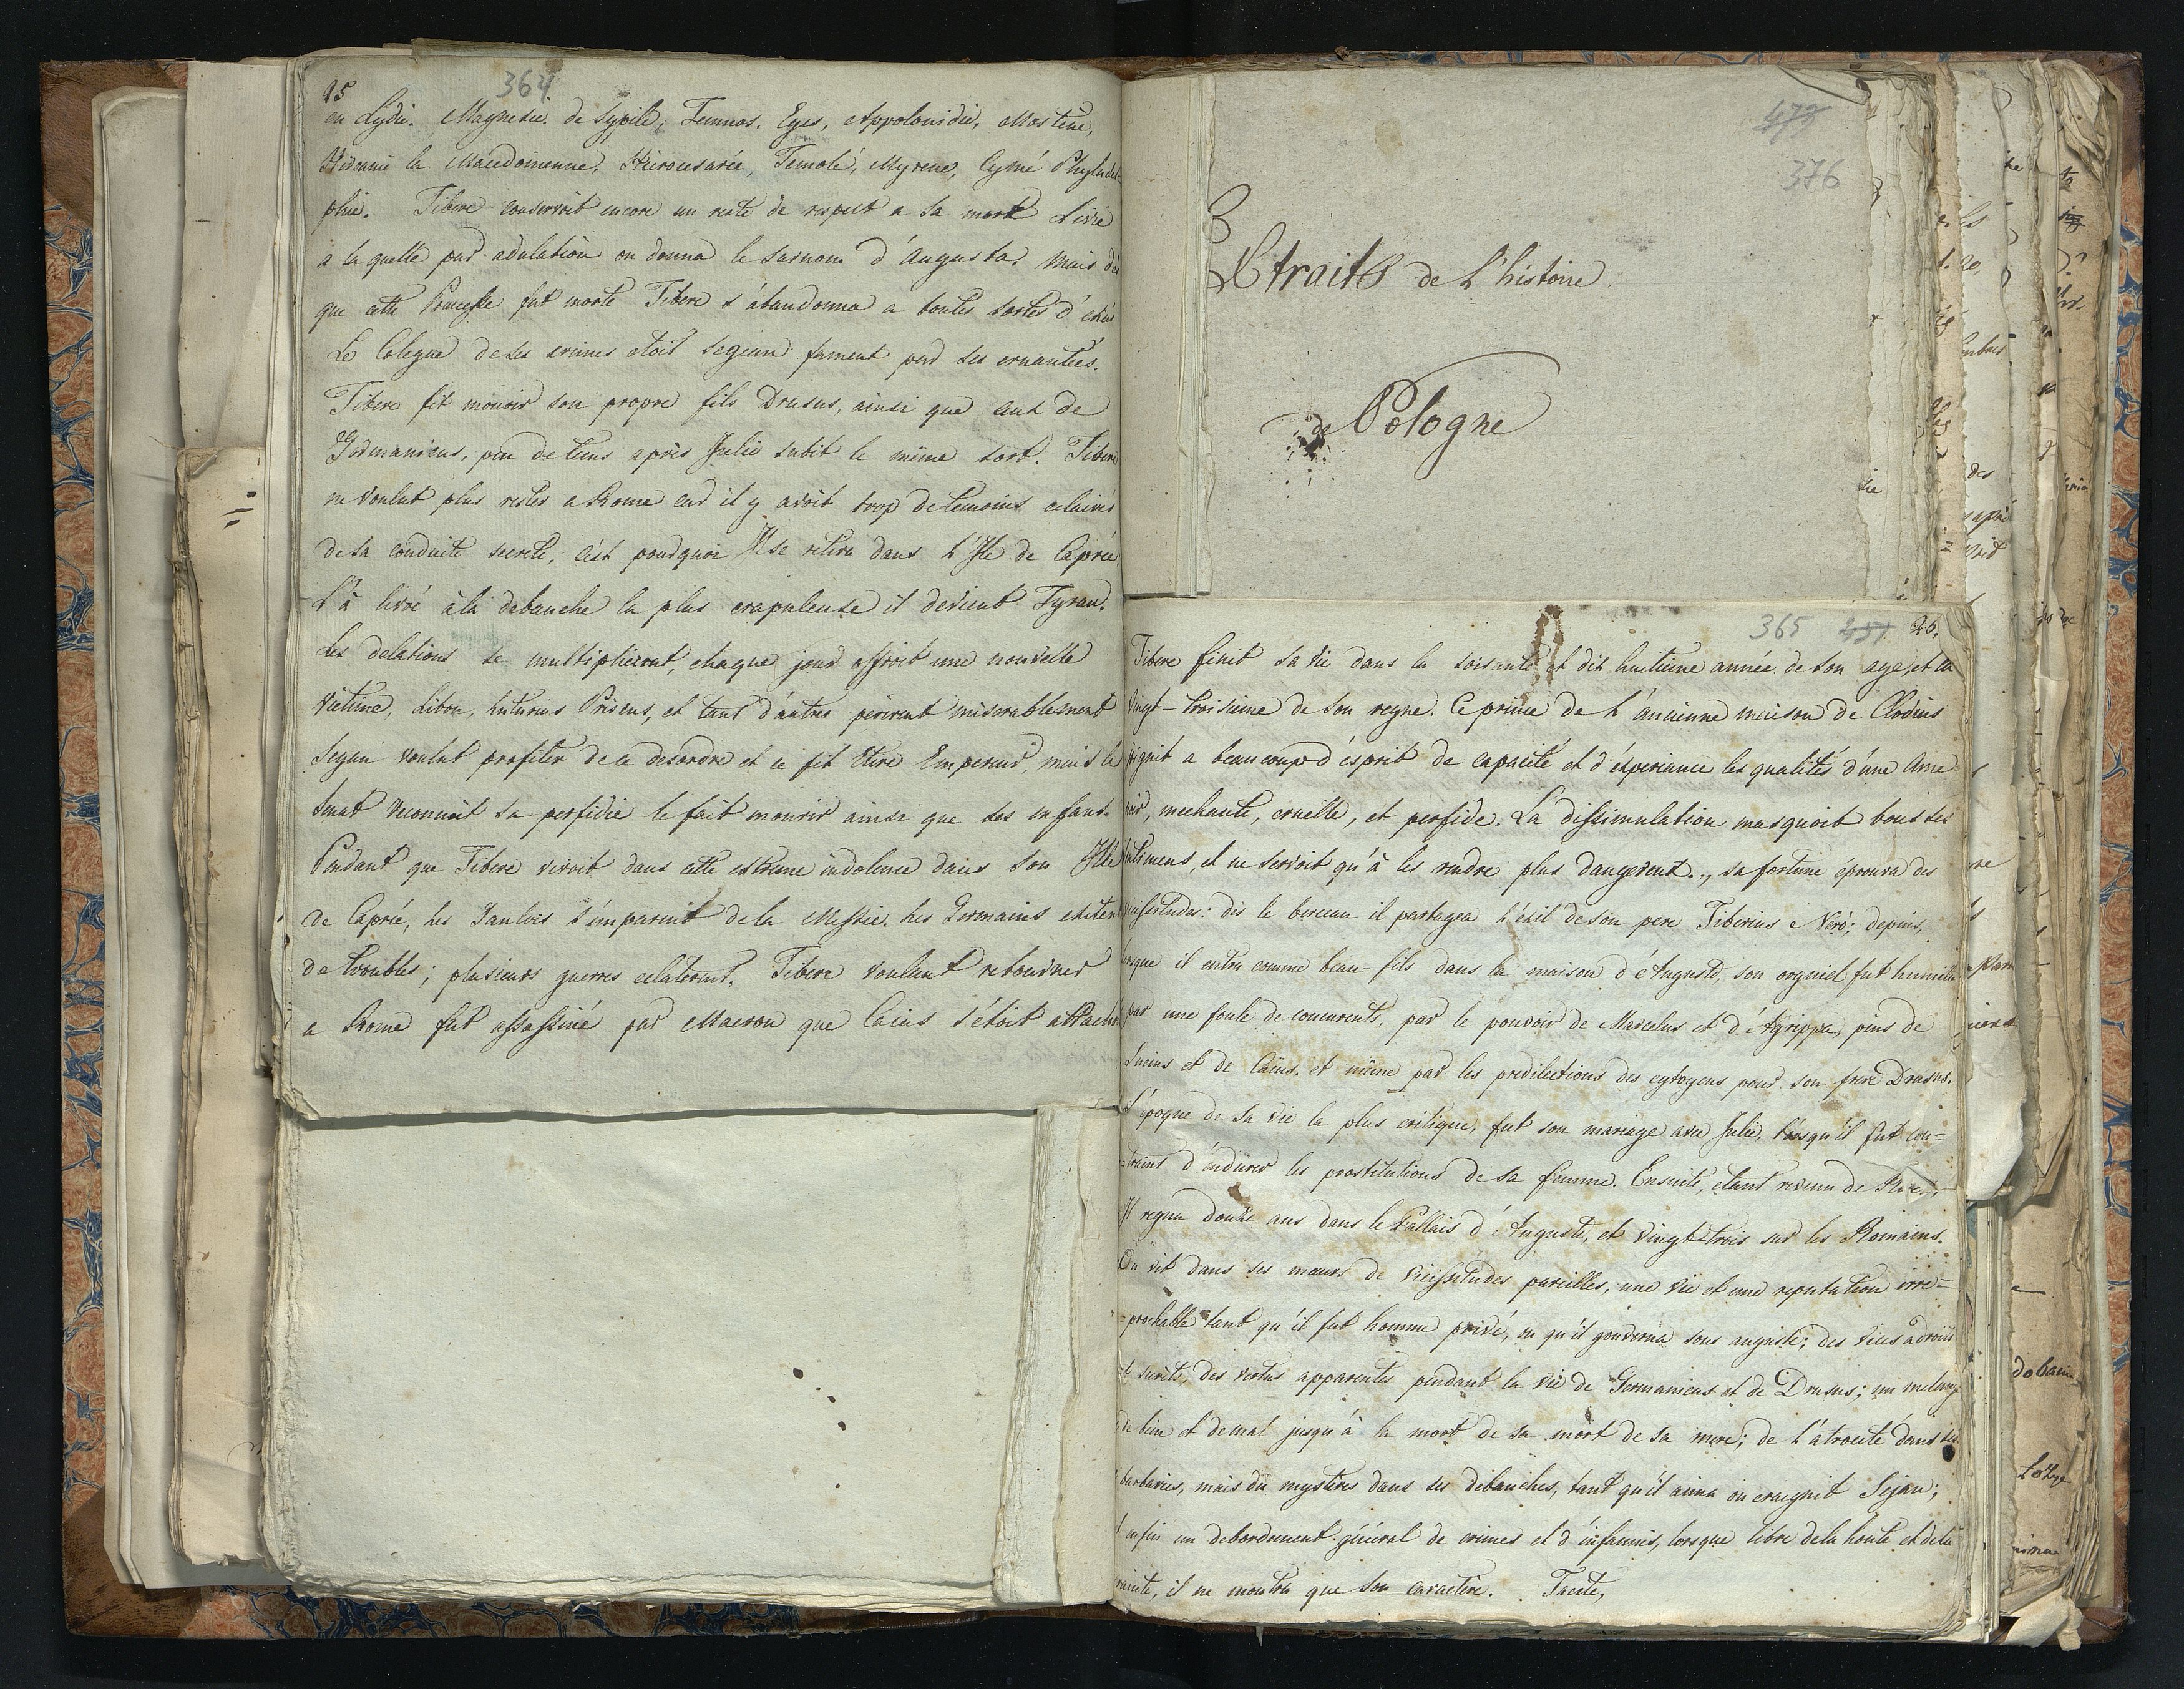 25
364
en Lydie. Magnesie de Sypile, Temnos, Eges, Appolonidie, Mostene,
Hircanie la Macedoinenne, Hierocesarée, Temole, Myrene, Cymé Phyladel=
phie. Tibere conservoit encore un reste de respect a sa mere Livie
a la quelle par adulation on donna le surnom d'Augusta. Mais dès
que cette Princesse fut morte Tibere s'abandonna a toutes sortes d'
Le Colegue de ses crimes étoit Segean fament par ses cruautées.
Tibere fit mourir son propre fils Drusus, ainsi que ceux de
Germanicus, peu de tems après Julie subit le même sort. Tibere
ne voulut plus rester a Rome car il y avoit trop de temoins eclairés
de sa conduite secrete, c'est pourquoi Il se retira dans l'Ile de Caprée
L'à livré à la debauche la plus crapuleuse il devient Tyran.
Les delations se multiplierent, chaque jour offroit une nouvelle
victime, Libon, Luturius Priscus, et tant d'autres perirent miserablement
Segan voulut profiter de ce desordre et se fit Elire Empereur, mais le
Senat reconnoit sa perfidie le fait mourir ainsi que ses enfans.
Pendant que Tibere vivoit dans cette extreme indolence dans son Ile
de Caprée, les Gaulois s'emparent de la Messie, les Germains exitent
de troubles; plusieurs guerres eclaterent. Tibere voulant retourner
a Rome fut assassiné par Macron que Caius s'étoit attaché
473
376
Extraits de L'histoire
de Pologne
365 451 26.
Tibere finit sa vie dans la soixante et dix huitieme année de son age, et la
vingt-troisieme de son regne. Ce prince de l'ancienne maison de Clodius
joignit a beaucoup d'esprit de capacité et d'experiance les qualités d'une Ame
noir, mechante, cruelle, et perfide. La dissimulation masquoit tous ses
sentimens, et ne servoit qu'à les rendre plus dangereux.., sa fortune éprouva des
vicissitudes: dès le berceau il partagea l'exil de son pere Tiberius Nero; depuis,
lorsque il entra comme beau-fils dans la maison d'Auguste, son orgueil fut humilié
par une foule de concurents, par le pouvoir de Marcelus et d'Agrippa, puis de
Lucius et de Caius, et même par les predilections des cytoyens pour son frere Drusus.
L'époque de sa vie la plus critique, fut son mariage avec Julie, lorsqu'il fut con=
=traint d'endurer les prostitutions de sa femme. Ensuite, etant revenu de
Il regna douze ans dans le Pallais d'Auguste, et vingt-trois sur les Romains.
On vit dans ses mœurs de vicissitudes pareilles, une vie et une reputation irre=
=prochable tant qu'il fut homme privé, ou qu'il gouverna sous auguste; des vices adroits
et secrets, des vertus apparentes pendant la vie de Germanicus et de Drusus; un melange
de bien et de mal jusqu'à la mort de sa mort de sa mere; de l'atrocité dans ses
barbaries, mais du mysteres dans ses débauches, tant qu'il aima ou craignit Sejan;
et enfin un debordement général de crimes et d'infamies, lorsque libre de la honte et de la
crainte, il ne montra que son caractère. Tacite,